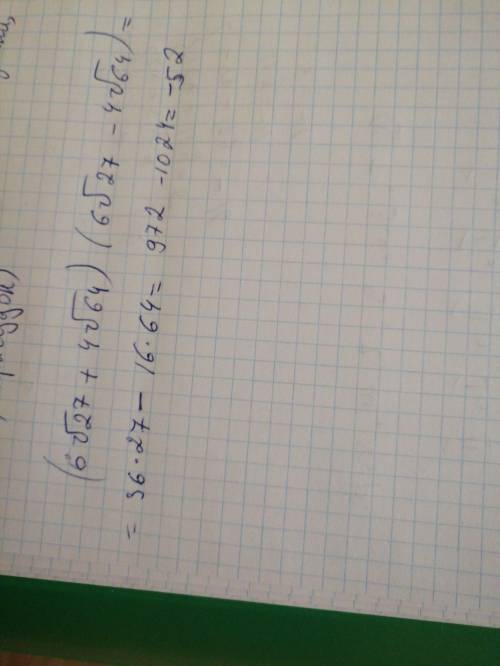 (6√27 + 4√64) (6√27 - 4√64) =
= 36·27 - 16·64 = 972 - 1024 = -52